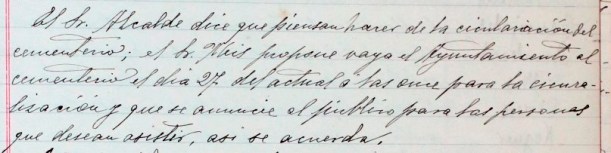 El Sr. Alcalde dice que piensan hacer de la circulariación del
cementerio; el Sr. propone vaya el Ayuntamiento al
cementerio el dia 27 del actual a las once para la
lización y que se anuncie al público para las personas
que desean asistir, asi se acuerda.